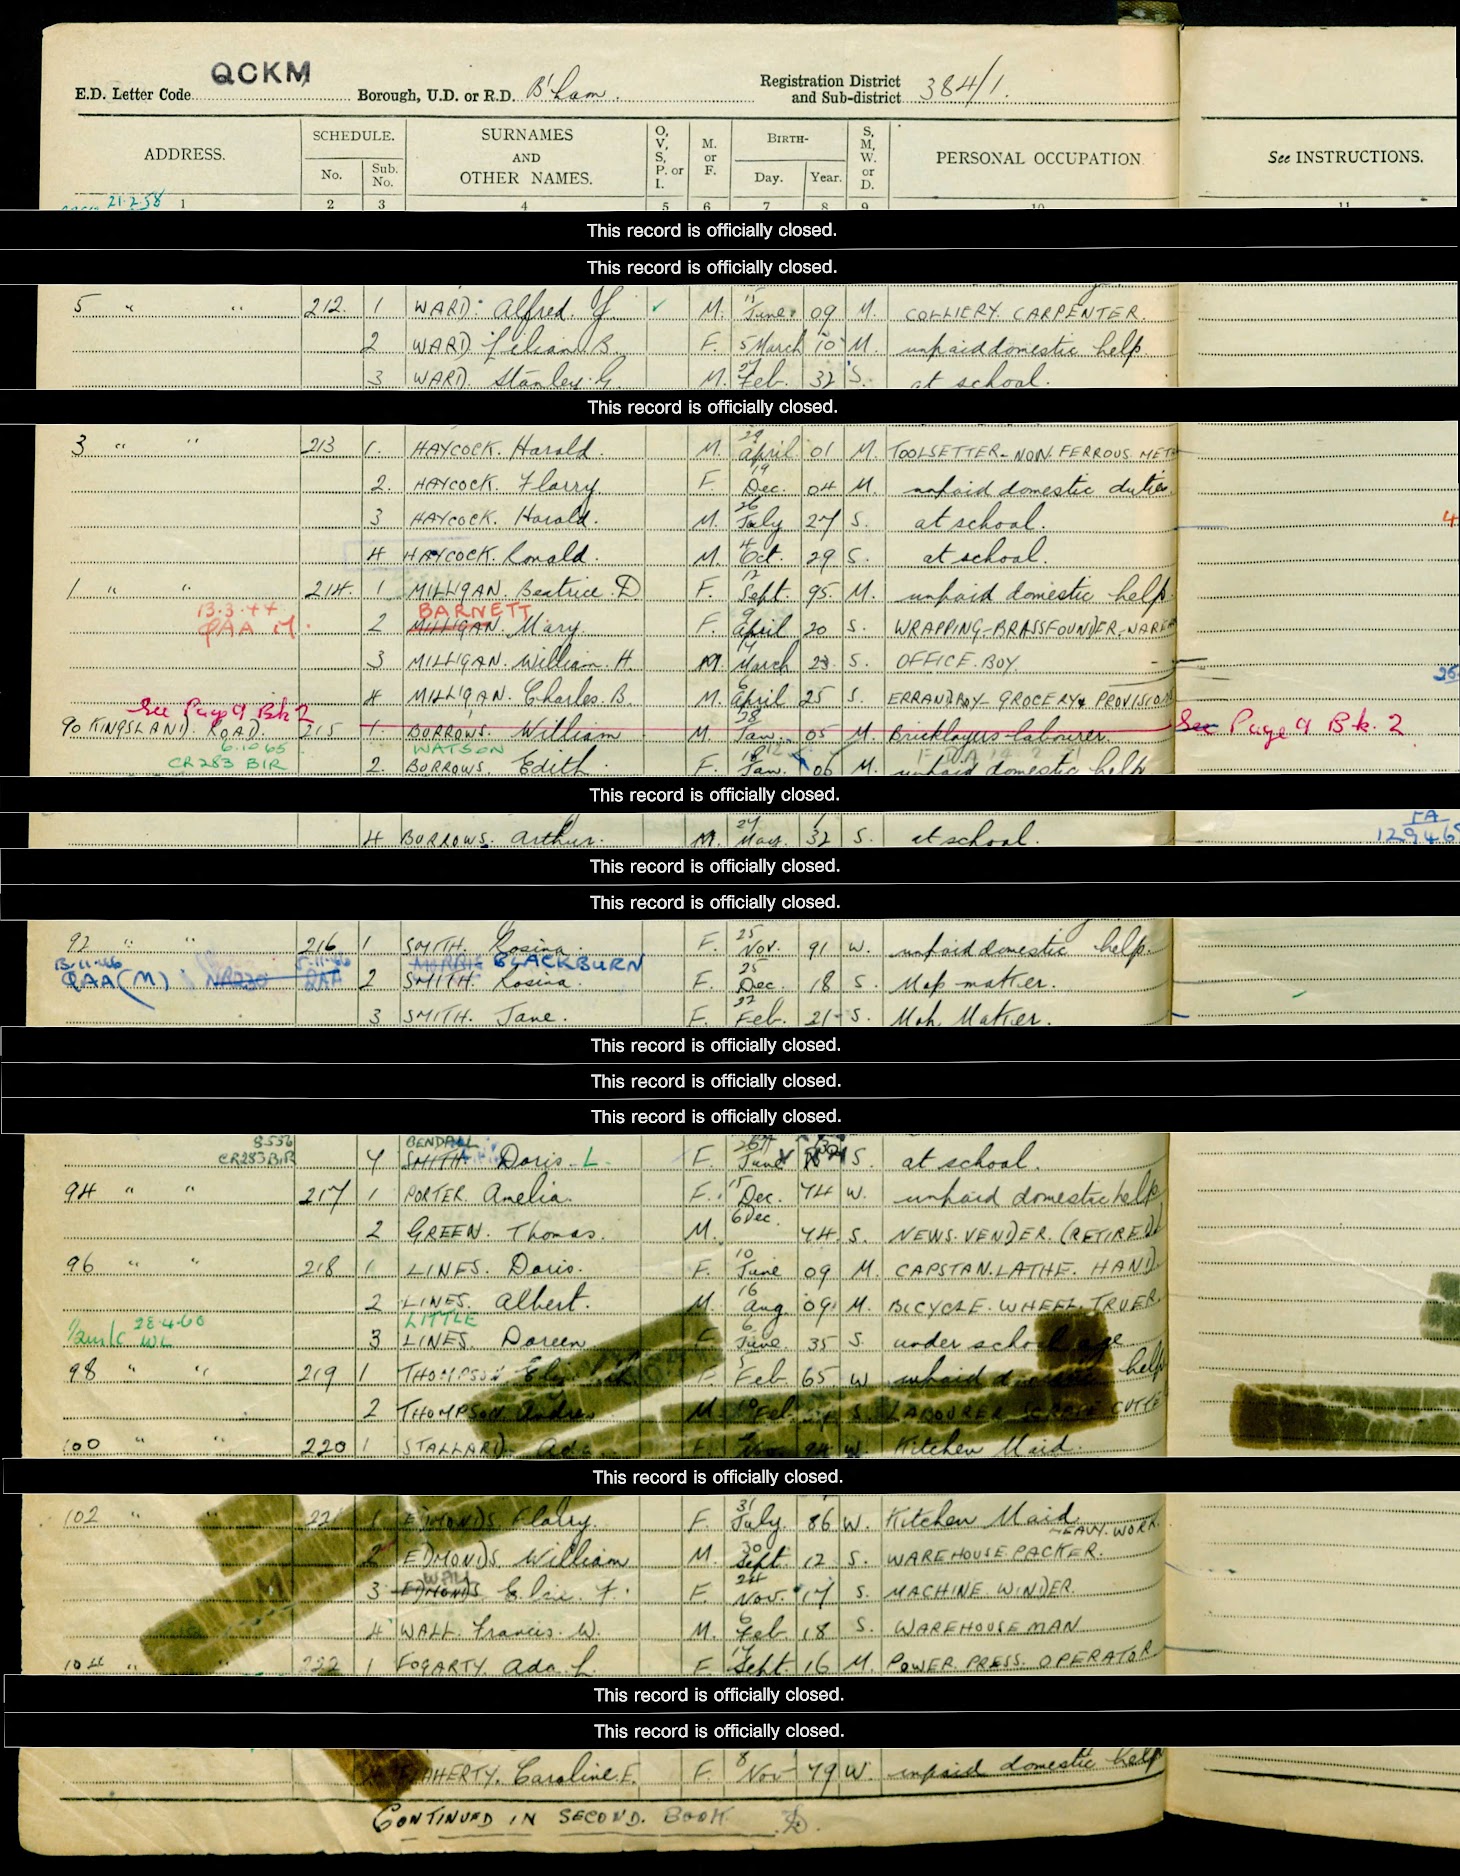 QCKM
E.D. Letter Code Borough, U.D. or R.D. B'ham. Registration District and Sub-district 384/1.
ADDRESS. SCHEDULE. No. Sub. No. SURNAMES AND OTHER NAMES. O, V, S, P. or I. M. or F. BIRTH- Day. Year. S, M, W. or D. PERSONAL OCCUPATION. See INSTRUCTIONS.
21.2.58 1 2 3 4 5 6 7 8 9 10 11
This record is officially closed.
This record is officially closed.
5 " " 212. 1 WARD. Alfred. J ✓ M. 15 June 09 M. COLLIERY. CARPENTER.
2 WARD. Lilian B. F. 5 March 10 M. unpaid domestic help
3 WARD. Stanley. G. M. 27 Feb. 32 S. at school.
This record is officially closed.
3 " " 213 1. HAYCOCK. Harold. M. 29 April 01 M. TOOLSETTER - NON. FERROUS. MET
2. HAYCOCK. Florry F. 19 Dec. 04 M. unpaid domestic duties.
3 HAYCOCK. Harold. M. 26 July 27 S. at school. 4
4 HAYCOCK. Ronald. M. 4 Oct. 29 S. at school.
1 " " 214. 1 MILLIGAN. Beatrice. D F. 12 Sept. 95. M. unpaid domestic help.
13.3.44 BARNETT
2 MILLIGAN. Mary. F. 9 April 20 S. WRAPPING - BRASSFOUNDER - WARE
3 MILLIGAN. William. H. M. 14 March 23 S. OFFICE. BOY.
4 MILLIGAN. Charles. B. M. 6 April 25 S. ERRAND BOY - GROCERY & PROVISION
See Page 9 Bk 2
90 KINGSLAND. ROAD. 215 1. BURROWS. William M. 28 Jan. 05 M. Bricklayers labourer. See Page 9 Bk. 2
6.10.65 WATSON
CR 283 BIR 2. BURROWS. Edith. F. 18 Jan. 06 M. unpaid domestic help
This record is officially closed.
4 BURROWS. Arthur. M. 27 May. 32 S. at school.
This record is officially closed.
This record is officially closed.
92 " " 216 1 SMITH. Rosina. F. 25 Nov. 91 W. unpaid domestic help.
BLACKBURN
2 SMITH. Rosina. F. 25 Dec. 18 S. Mop maker.
3 SMITH. Jane. F. 22 Feb. 21 S. Mop Maker.
This record is officially closed.
This record is officially closed.
This record is officially closed.
BENDALL
CR283BIR 4 SMITH. Doris. L. F. June S. at school.
94 " " 217 1 PORTER. Amelia. F. 15 Dec. 74 W. unpaid domestic help
2 GREEN. Thomas. M. 6 Dec. 74. S. NEWS. VENDER. (RETIRED)
96 " " 218 1 LINES. Doris. F. 10 June 09 M. CAPSTAN. LATHE. HAND.
2 LINES. Albert. M. 16 Aug. 09. M. BICYCLE. WHEEL. TRUER
28.4.60 LITTLE
3 LINES. Doreen F 6 June. 35 S. under school age
98 " " 219 1 THOMPSON F 5 Feb 65 W unpaid domestic help
2 THOMPSON Andrew M 10 Feb LABOURER
100 " " 220 1 STALLARD. Ada F. Nov. 94 W. Kitchen Maid.
This record is officially closed.
102 " " 221 1 EDMONDS Florry. F. 31 July. 86 W. Kitchen Maid.
HEAVY. WORK.
2 EDMONDS. William M. 30 Sept. 12 S. WAREHOUSE. PACKER.
WALL
3 EDMONDS Elsie. F. F. 24 Nov. 17 S. MACHINE. WINDER.
4 WALL. Francis. W. M. 6 Feb 18 S. WAREHOUSE MAN
104 " 222 1 FOGARTY. Ada. L. F 17 Sept. 16 M. POWER. PRESS. OPERATOR
This record is officially closed.
This record is officially closed.
FLAHERTY. Caroline. E. F. 8 Nov 79 W unpaid domestic help
CONTINUED IN SECOND. BOOK